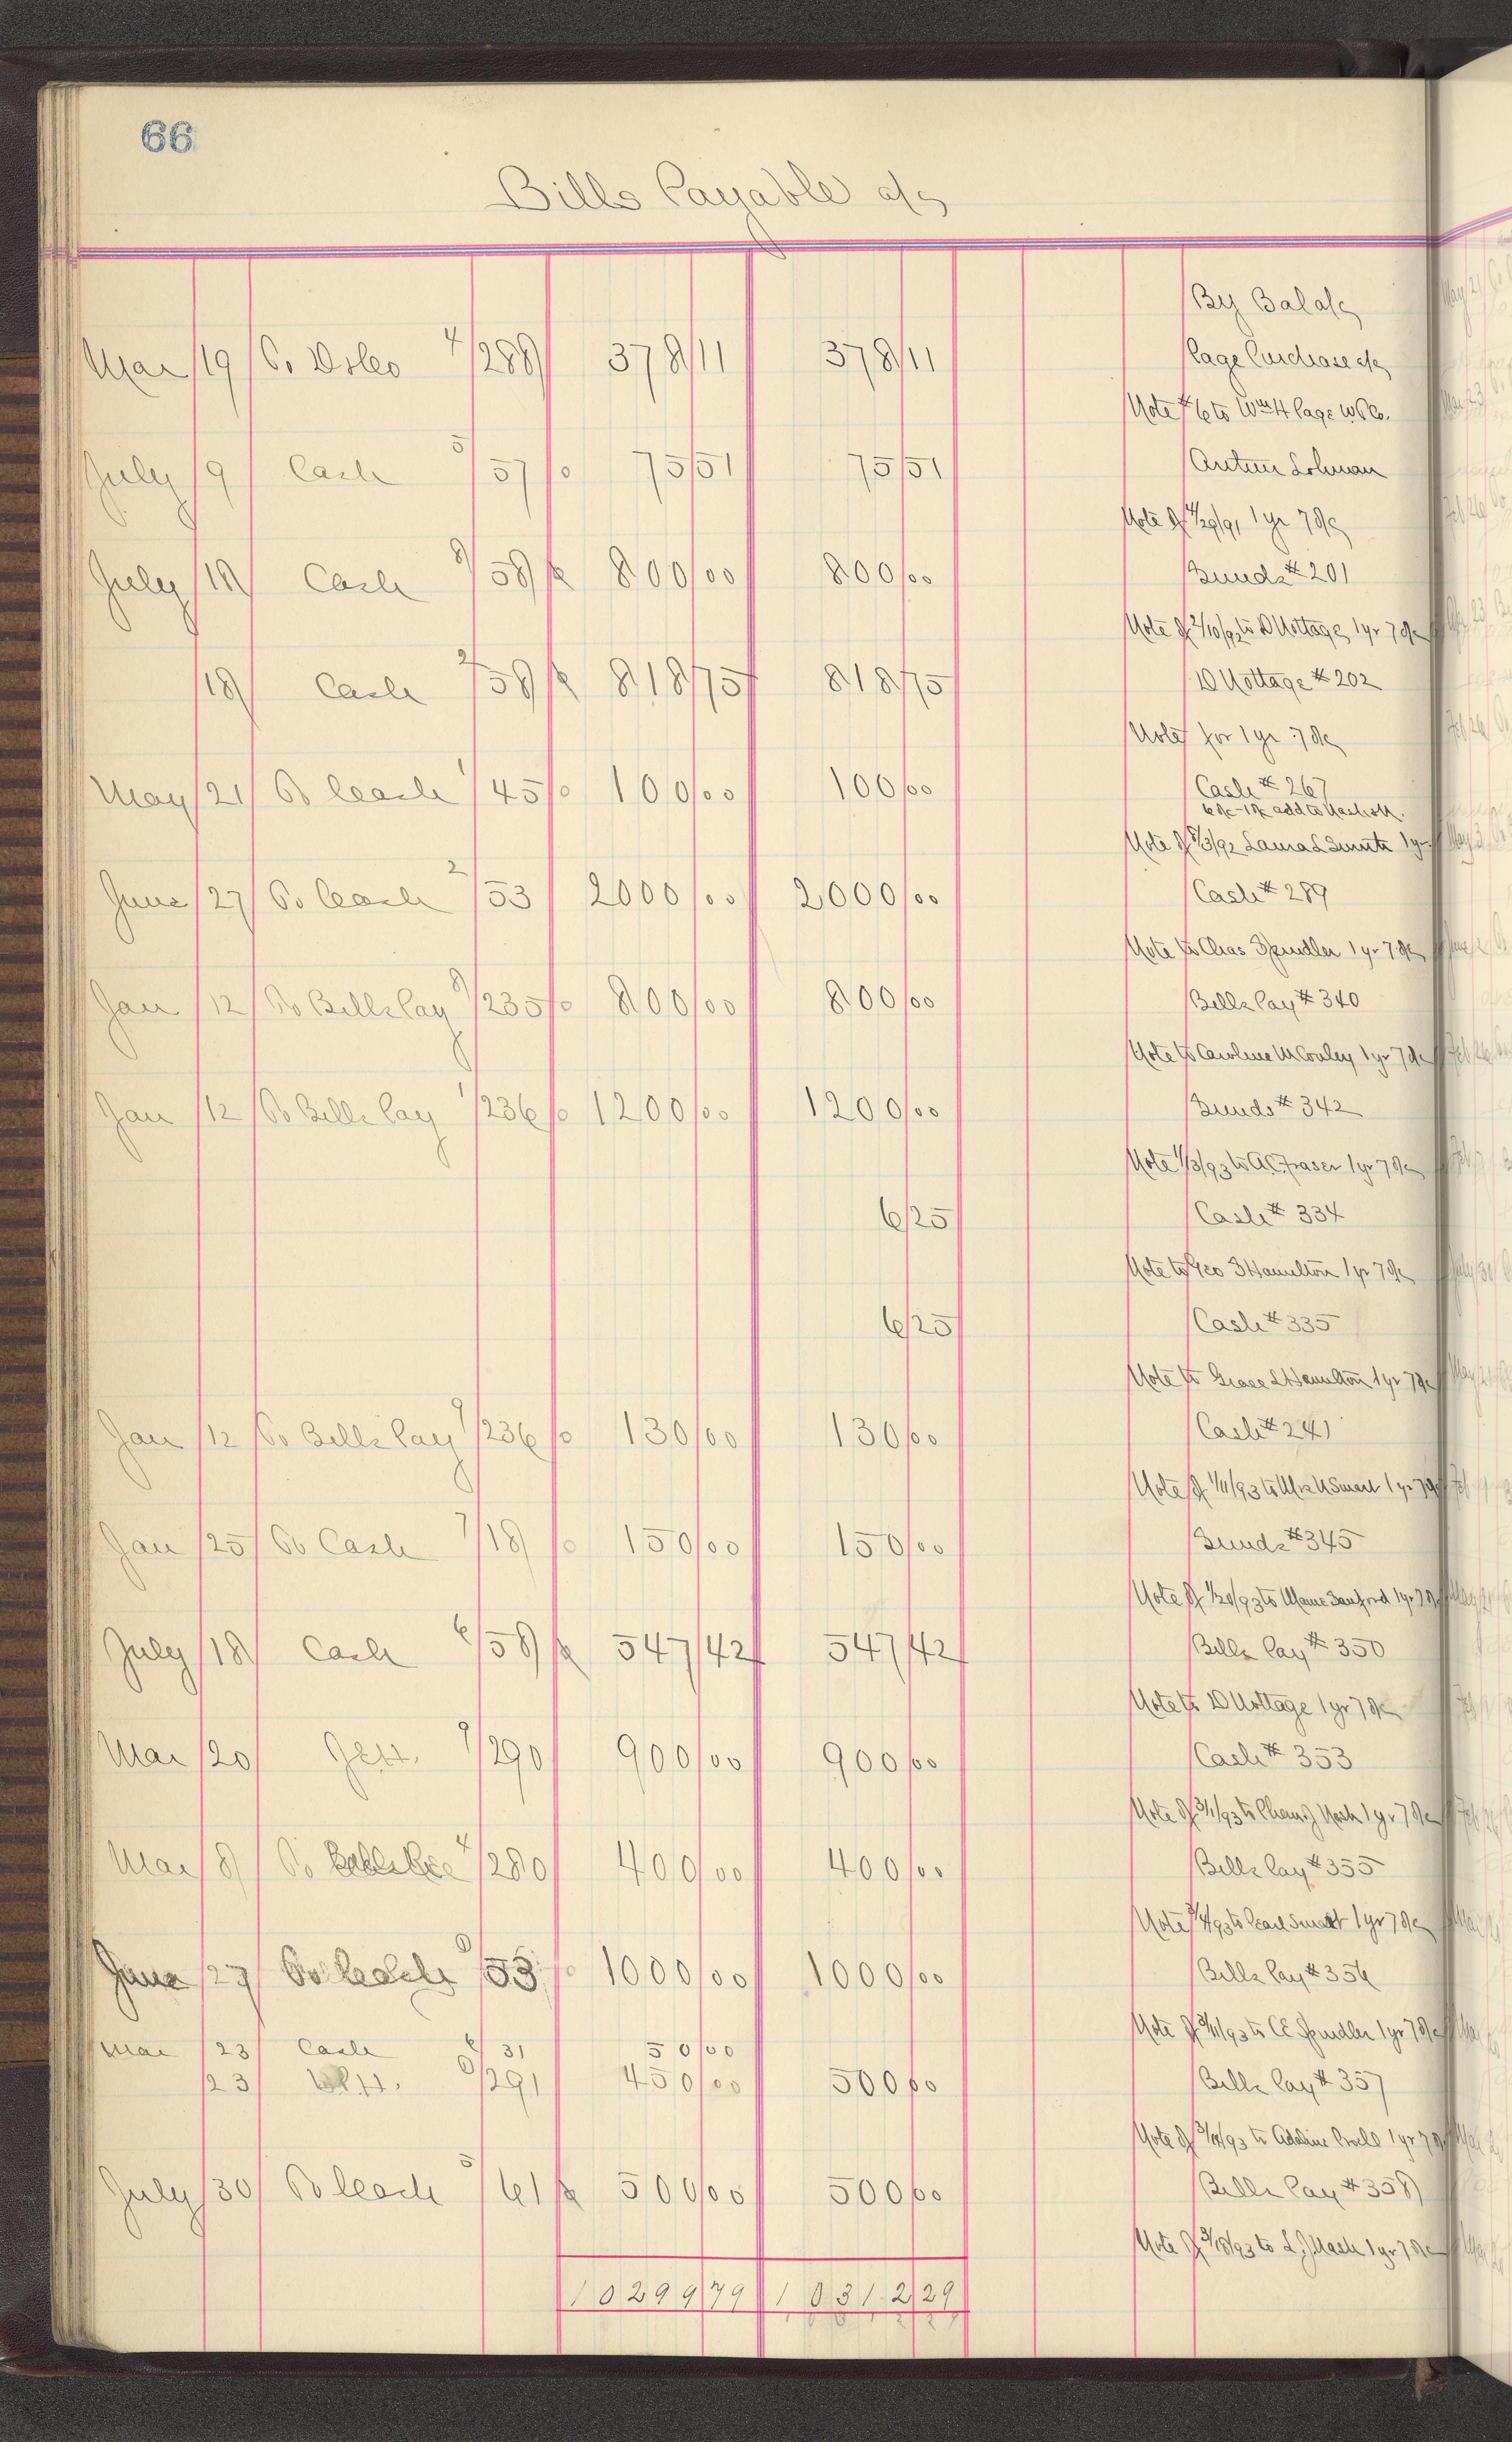 66
Bills Payable a/c
By Bal a/c
Mar 19 To 4/288 378 11 378 11 Page Purchase a/c
Note #6 to Wm H Page W.P. Co.
July 9 Cash 5/57 75 51 75 51 Lohman
Note of 4/29/91 1 yr 7%
July 18 Cash 8/58 800 00 800 00 Bunds #201
Note of 2/10/92 to D Nottage 1 yr 7%
18 Cash 2/58 818 75 818 75 D Nottage #202
Note for 1 yr 7%
May 21 To Cash 1/45 100 00 100 00 Cash #267
6% - 1% add to
Note of 5/3/92 Laura L 1 yr
June 27 To Cash 2/53 2000 00 2000 00 Cash #289
Note to Chas Spindler 1 yr 7%
Jan 12 To Bills Pay 8/235 800 00 800 00 Bills Pay #340
Note to Caroline M Conley 1 yr 7%
Jan 12 To Bills Pay 1/236 1200 00 1200 00 Bunds #342
Note 1/3/93 to A.C. Fraser 1 yr 7%
6 25 Cash #334
Note to Geo 3 Hamilton 1 yr 7%
6 25 Cash #335
Note to Grace L Hamilton 1 yr 7%
Jan 12 To Bills Pay 9/236 130 00 130 00 Cash #241
Note of 1/11/93 to Mrs N Smart 1 yr 7%
Jan 25 To Cash 7/18 150 00 150 00 Bunds #345
Note of 1/20/93 to Sanford 1 yr 7%
July 18 Cash 6/58 547 42 547 42 Bills Pay #350
Note to D Nottage 1 yr 7%
Mar 20 9/290 900 00 900 00 Cash #353
Note of 3/1/93 to Nash 1 yr 7%
Mar 8 To 4/280 400 00 400 00 Bills Pay #355
Note to Pearl Smart 1 yr 7%
June 27 To Cash 8/53 1000 00 1000 00 Bills Pay #356
Note of 3/11/93 to CE Spindler 1 yr 7%
Mar 23 Cash 6/31 50 00
23 8/291 450 00 500 00 Bills Pay #357
Note of 93 to Adaline 1 yr 7%
July 30 To Cash 5/61 500 00 500 00 Bills Pay #358
Note of 3/18/93 to L J Mack 1 yr 7%
10299 79 10312 29